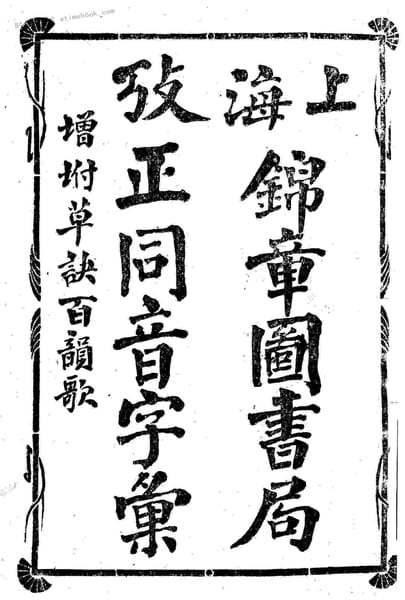 上海
錦章圖書局
攷正同音字彙
增坿草訣百韻歌